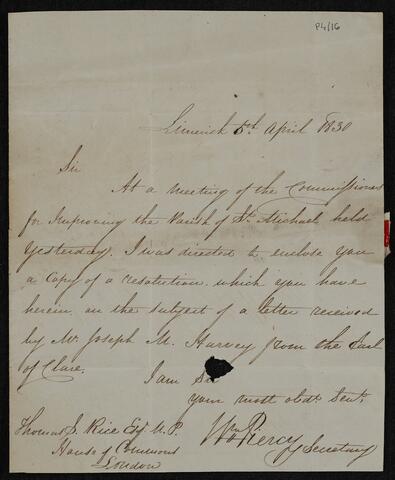 P4/16
Limerick 6th April 1830
Sir
At a meeting of the Commissioners
for Improving the Parish of St. Michael held
Yesterday, I was directed to enclose you
a Copy of a resolution which you have
herein on the subject of a letter received
by Mr. Joseph M. Harvey from the Earl
of Clare.
I am Sir
your most obdt. Servt.
Wm Piercy
Secretary
Thomas S. Rice Esq M.P.
House of Commons
London